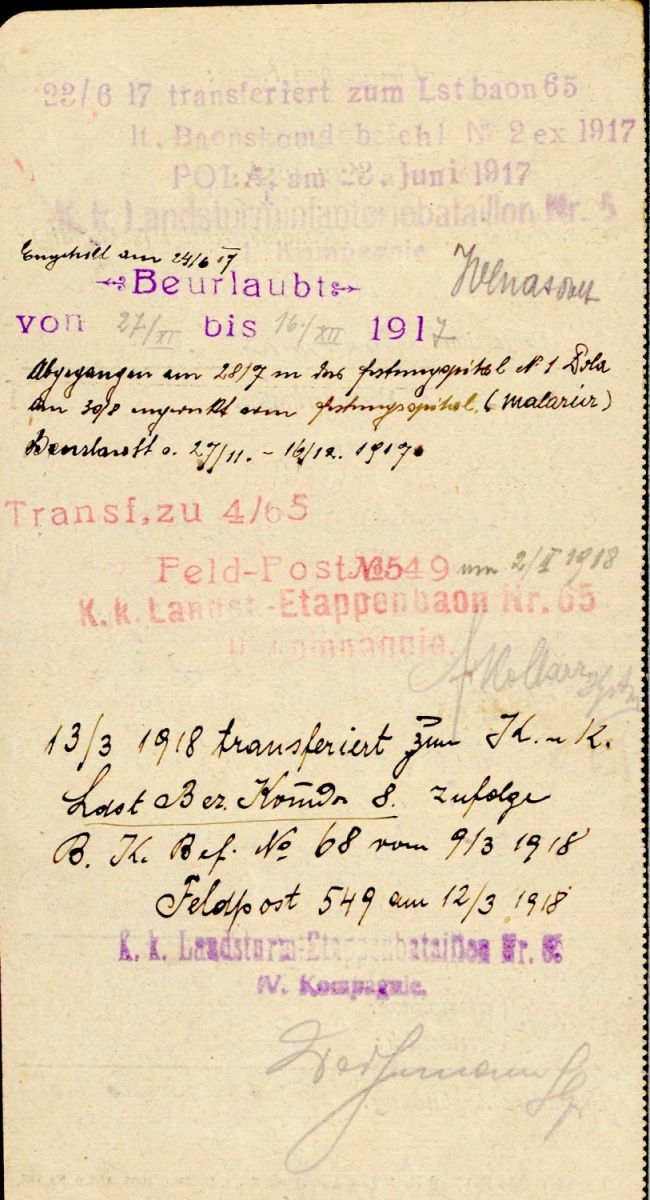 22/6 17 transferiert zum Lstbaon 65
lt. Baonskomdobefehl No 2 ex 1917
POLA, am 22. Juni 1917
K. k. Landsturminfanteriebataillon Nr. 5
Kompagnie
am 24/6 17
Beurlaubt
von 27/XI bis 16/XII 1917
Abgegangen am 28/7 in das festungsspital No 1 Pola
am 30/8 vom festungsspital. (Malaria)
Beurlaubt v. 27/11. - 16/12. 1917.
Transf, zu 4/65
Feld-Post No 549 am 2/I 1918
K. k. Landst.-Etappenbaon Nr. 65
Kompagnie.
13/3 1918 transferiert zum K. u K.
Ldst Bez. Komdo 8. zufolge
B. K. Bef. No 68 vom 9/3 1918
Feldpost 549 am 12/3 1918
K. k. Landsturm-Etappenbataillon Nr. 65
IV. Kompagnie.